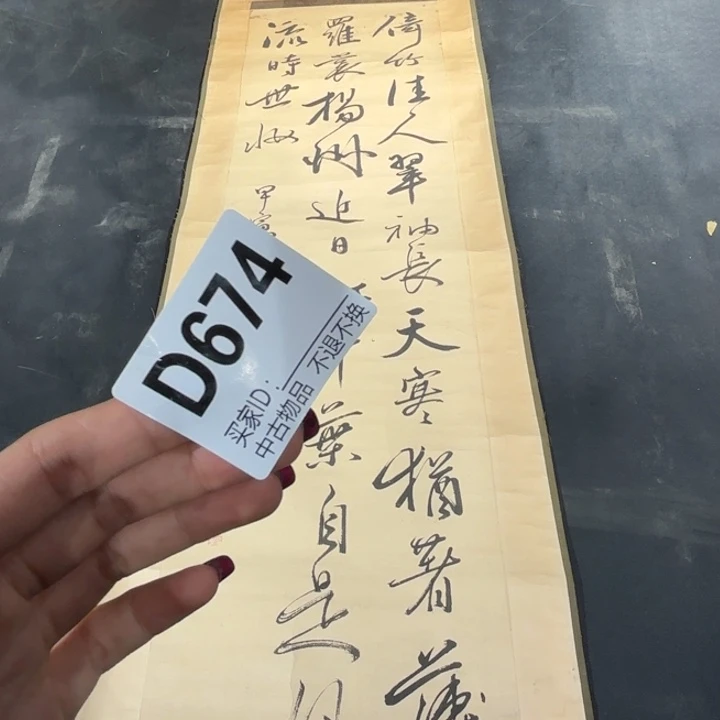 倚竹佳人翠袖長天寒猶著薄
羅裳楊州近日
葉自是
流時世妝
甲寅
D674
买家ID:
中古物品 不退不换